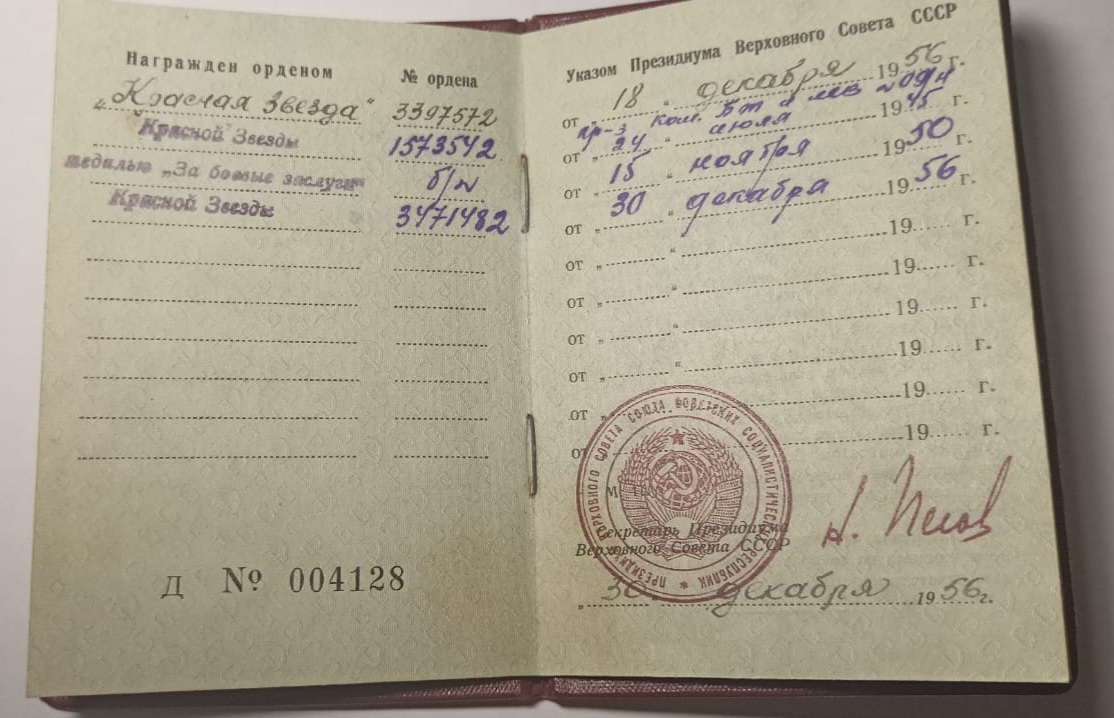 Награжден орденом
№ ордена
„Красная Звезда“ 3397572
Красной Звезды 1573542
медалью „За боевые заслуги“ б/н
Красной Звезды 3471482
Д № 004128
Указом Президиума Верховного Совета СССР
от „18“ декабря 1956 г.
пр-з ком.
от „24“ июля 1945 г.
от „15“ ноября 1950 г.
от „30“ декабря 1956 г.
от „ “ 19 г.
от „ “ 19 г.
от „ “ 19 г.
от „ “ 19 г.
от „ “ 19 г.
от 19 г.
ПРЕЗИДИУМ ВЕРХОВНОГО СОВЕТА СОЮЗА СОВЕТСКИХ СОЦИАЛИСТИЧЕСКИХ РЕСПУБЛИК
М.
Секретарь Президиума
Верховного Совета СССР
Н. Пегов
„30“ декабря 1956 г.